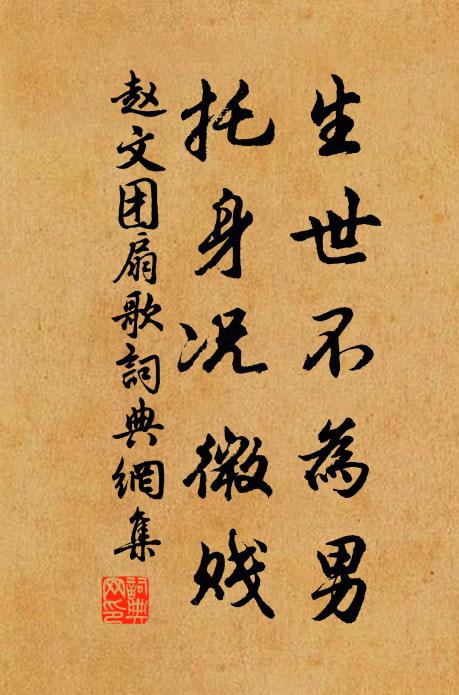 生世不為男
托身况微贱
赵文团扇歌詞典網集
詞典网印